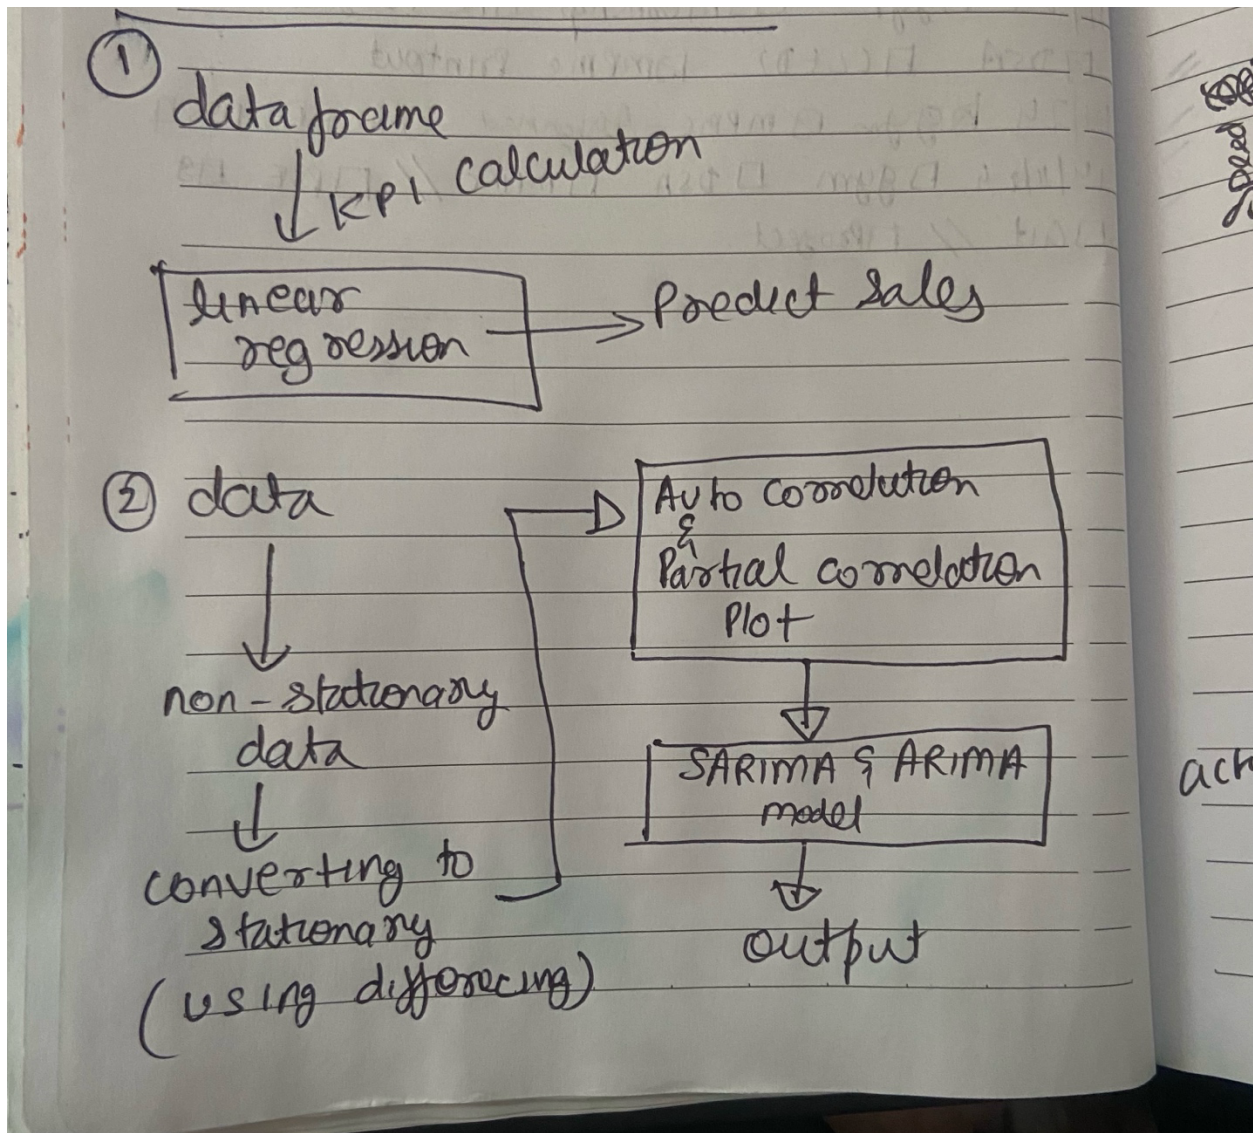 1
data frame
KPI calculation
linear
regression
Predict Sales
2 data
non-stationary
data
converting to
stationary
(using differecing)
Auto correlation
&
Partial correlation
Plot
SARIMA & ARIMA
model
output